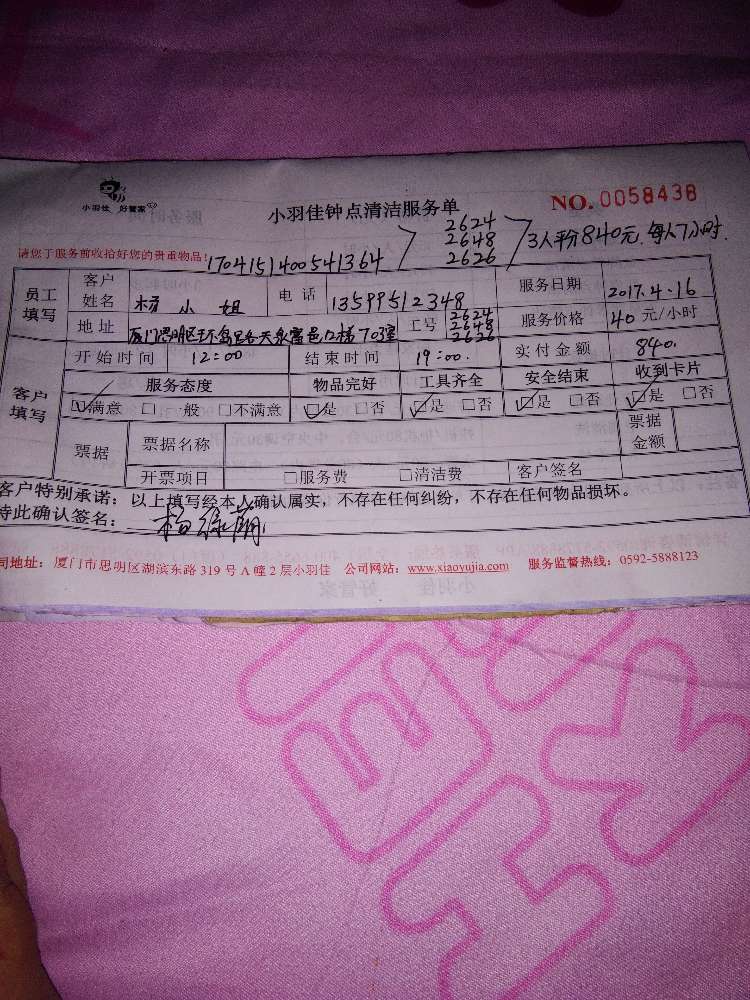 小羽佳 好管家
小羽佳钟点清洁服务单
NO.0058438
请您于服务前收拾好您的贵重物品!
170415140054 1364
2624
2648
2626
3人平分840元.每人7小时.
员工填写 客户姓名 杨小姐 电话 13599512348 服务日期 2017.4.16
地址 厦门思明区环岛 天 富邑12梯703室 工号 2624 2648 2626 服务价格 40元/小时
客户填写 开始时间 12:00 结束时间 19:00. 实付金额 840.
服务态度 物品完好 工具齐全 安全结束 收到卡片
☑满意 □一般 □不满意 ☑是 □否 ☑是 □否 ☑是 □否 ☑是 □否
票据 票据名称 票据金额
开票项目 □服务费 □清洁费 客户签名
客户特别承诺:以上填写经本人确认属实,不存在任何纠纷,不存在任何物品损坏。
特此确认签名:杨
司地址:厦门市思明区湖滨东路319号A幢2层小羽佳 公司网站:www.xiaoyujia.com 服务监督热线:0592-5888123